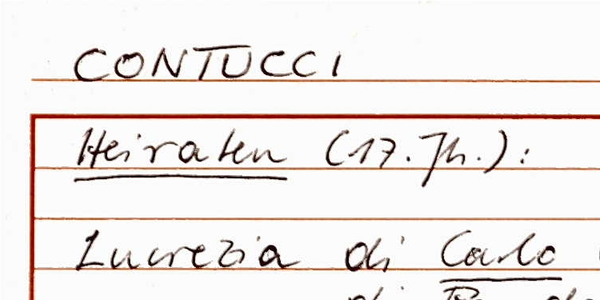 CONTUCCI
Heiraten (17. Jh.):
Lucrezia di Carlo
di